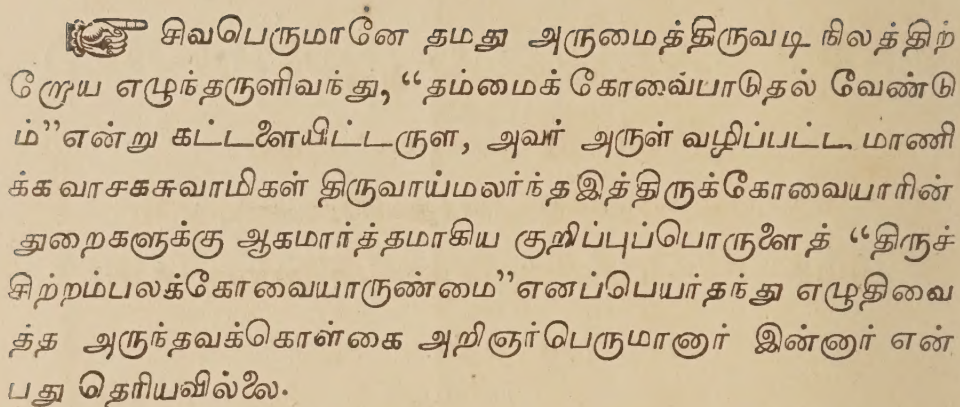 ☞ சிவபெருமானே தமது அருமைத்திருவடி நிலத்திற்
றோய எழுந்தருளிவந்து, “தம்மைக் கோவைபாடுதல் வேண்டு
ம்”என்று கட்டளையிட்டருள, அவர் அருள் வழிப்பட்ட மாணி
க்க வாசகசுவாமிகள் திருவாய்மலர்ந்தஇத்திருக்கோவையாரின்
துறைகளுக்கு ஆகமார்த்தமாகிய குறிப்புப்பொருளைத் “திருச்
சிற்றம்பலக்கோவையாருண்மை”எனப்பெயர்தந்து எழுதிவை
த்த அருந்தவக்கொள்கை அறிஞர்பெருமானார் இன்னார் என்
பது தெரியவில்லை.